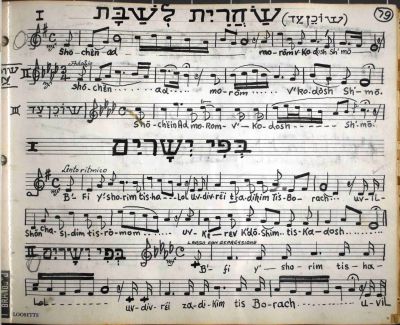 I שחרית לשבת (שוכן עד) 79
Sho-chén-ad ma-rōm v'Ko-dōsh Sh'mō
II Adagio
Shō-chén ad ma-rom v'ko-dosh Sh'-mō.
III שוכן עד
Shō-chein Ad ma-Rom-V'-Ko-dosh Sh'mō-
I בפי ישרים
Lento ritmico
B'-Fi y'sho-rim tis-ha-Lol uv-div-réi tza-dikim Tis-Bo-rach uv-iL-
Shōn cha-Si-dim tis-rō-mom uv-Ki-rev K'dō-Shim-tis-Ka-dosh
LARGO CON ESPRESSIONE
II בפי ישרים
B'-fi y'-sho-rim tis-ha-
Lol uv-div-réi za-di-kim tis Bo-rach U-vil
LOOSETTS